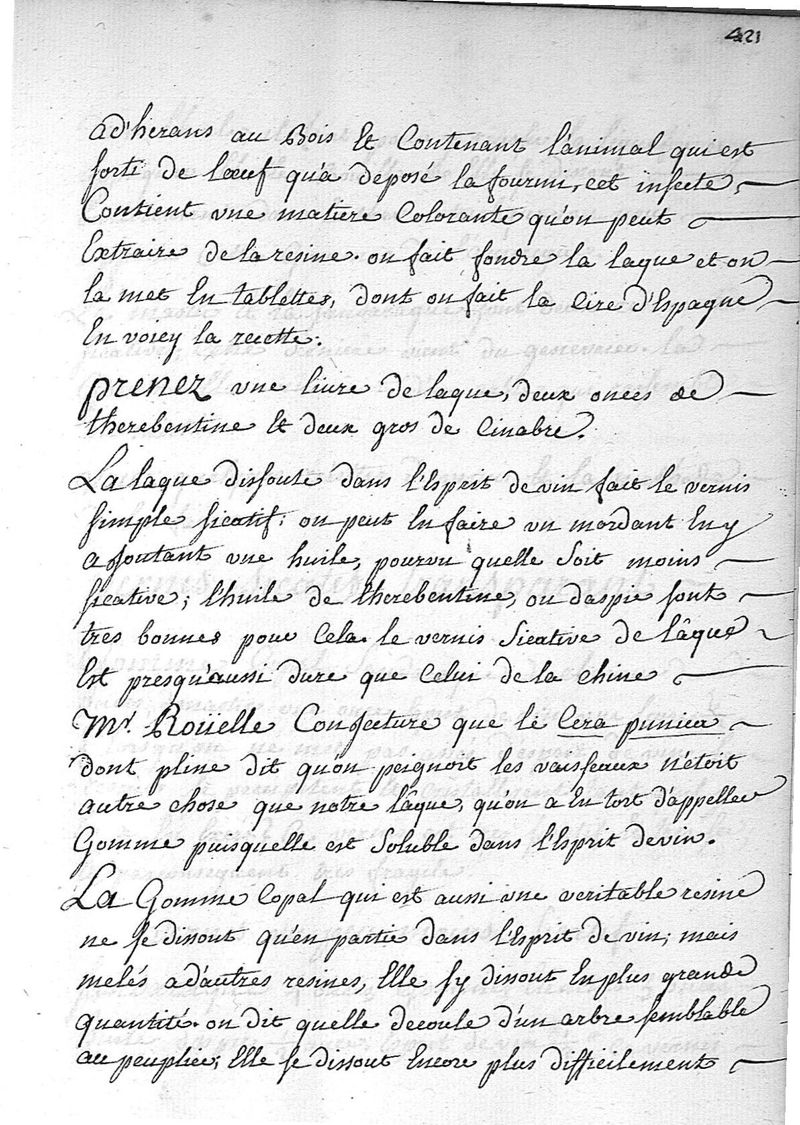 421
ad'herans au Bois Et Contenant l'animal qui est
forti de l'œuf qu'a deposé la fourmi, cet insecte
Contient vne matiere Colorante qu'on peut
Extraire de la resine. on fait fondre la laque et on
la met En tablettes, dont on fait la Cire d'Espagne
En voicy la recette.
prenez vne livre de laque, deux onces de
therebentine Et deux gros de Cinabre.
La laque dissoute dans l'Esprit de vin fait le vernis
simple sicatif. on peut En faire vn mordant En y
ajoutant vne huile, pourvu quelle soit moins
sicative; l'huile de therebentine, ou daspic sont
tres bonnes pour Cela. le vernis Sicative de lâque
Est presqu'aussi dure que Celui de la chine
Mr. Roüelle Conjecture que le Cera punica
dont pline dit qu'on peignoit les vaisseaux n'étoit
autre chose que notre lâque, qu'on a En tort d'appeller
Gomme puisquelle est Soluble dans l'Esprit de vin.
La Gomme Copal qui est aussi vne veritable resine
ne se dissout qu'en partie dans l'Esprit de vin; mais
melés a d'autres resines, Elle s'y dissout En plus grande
quantité. on dit quelle decoule d'un arbre semblable
au peuplier; Elle se dissout Encore plus difficilement